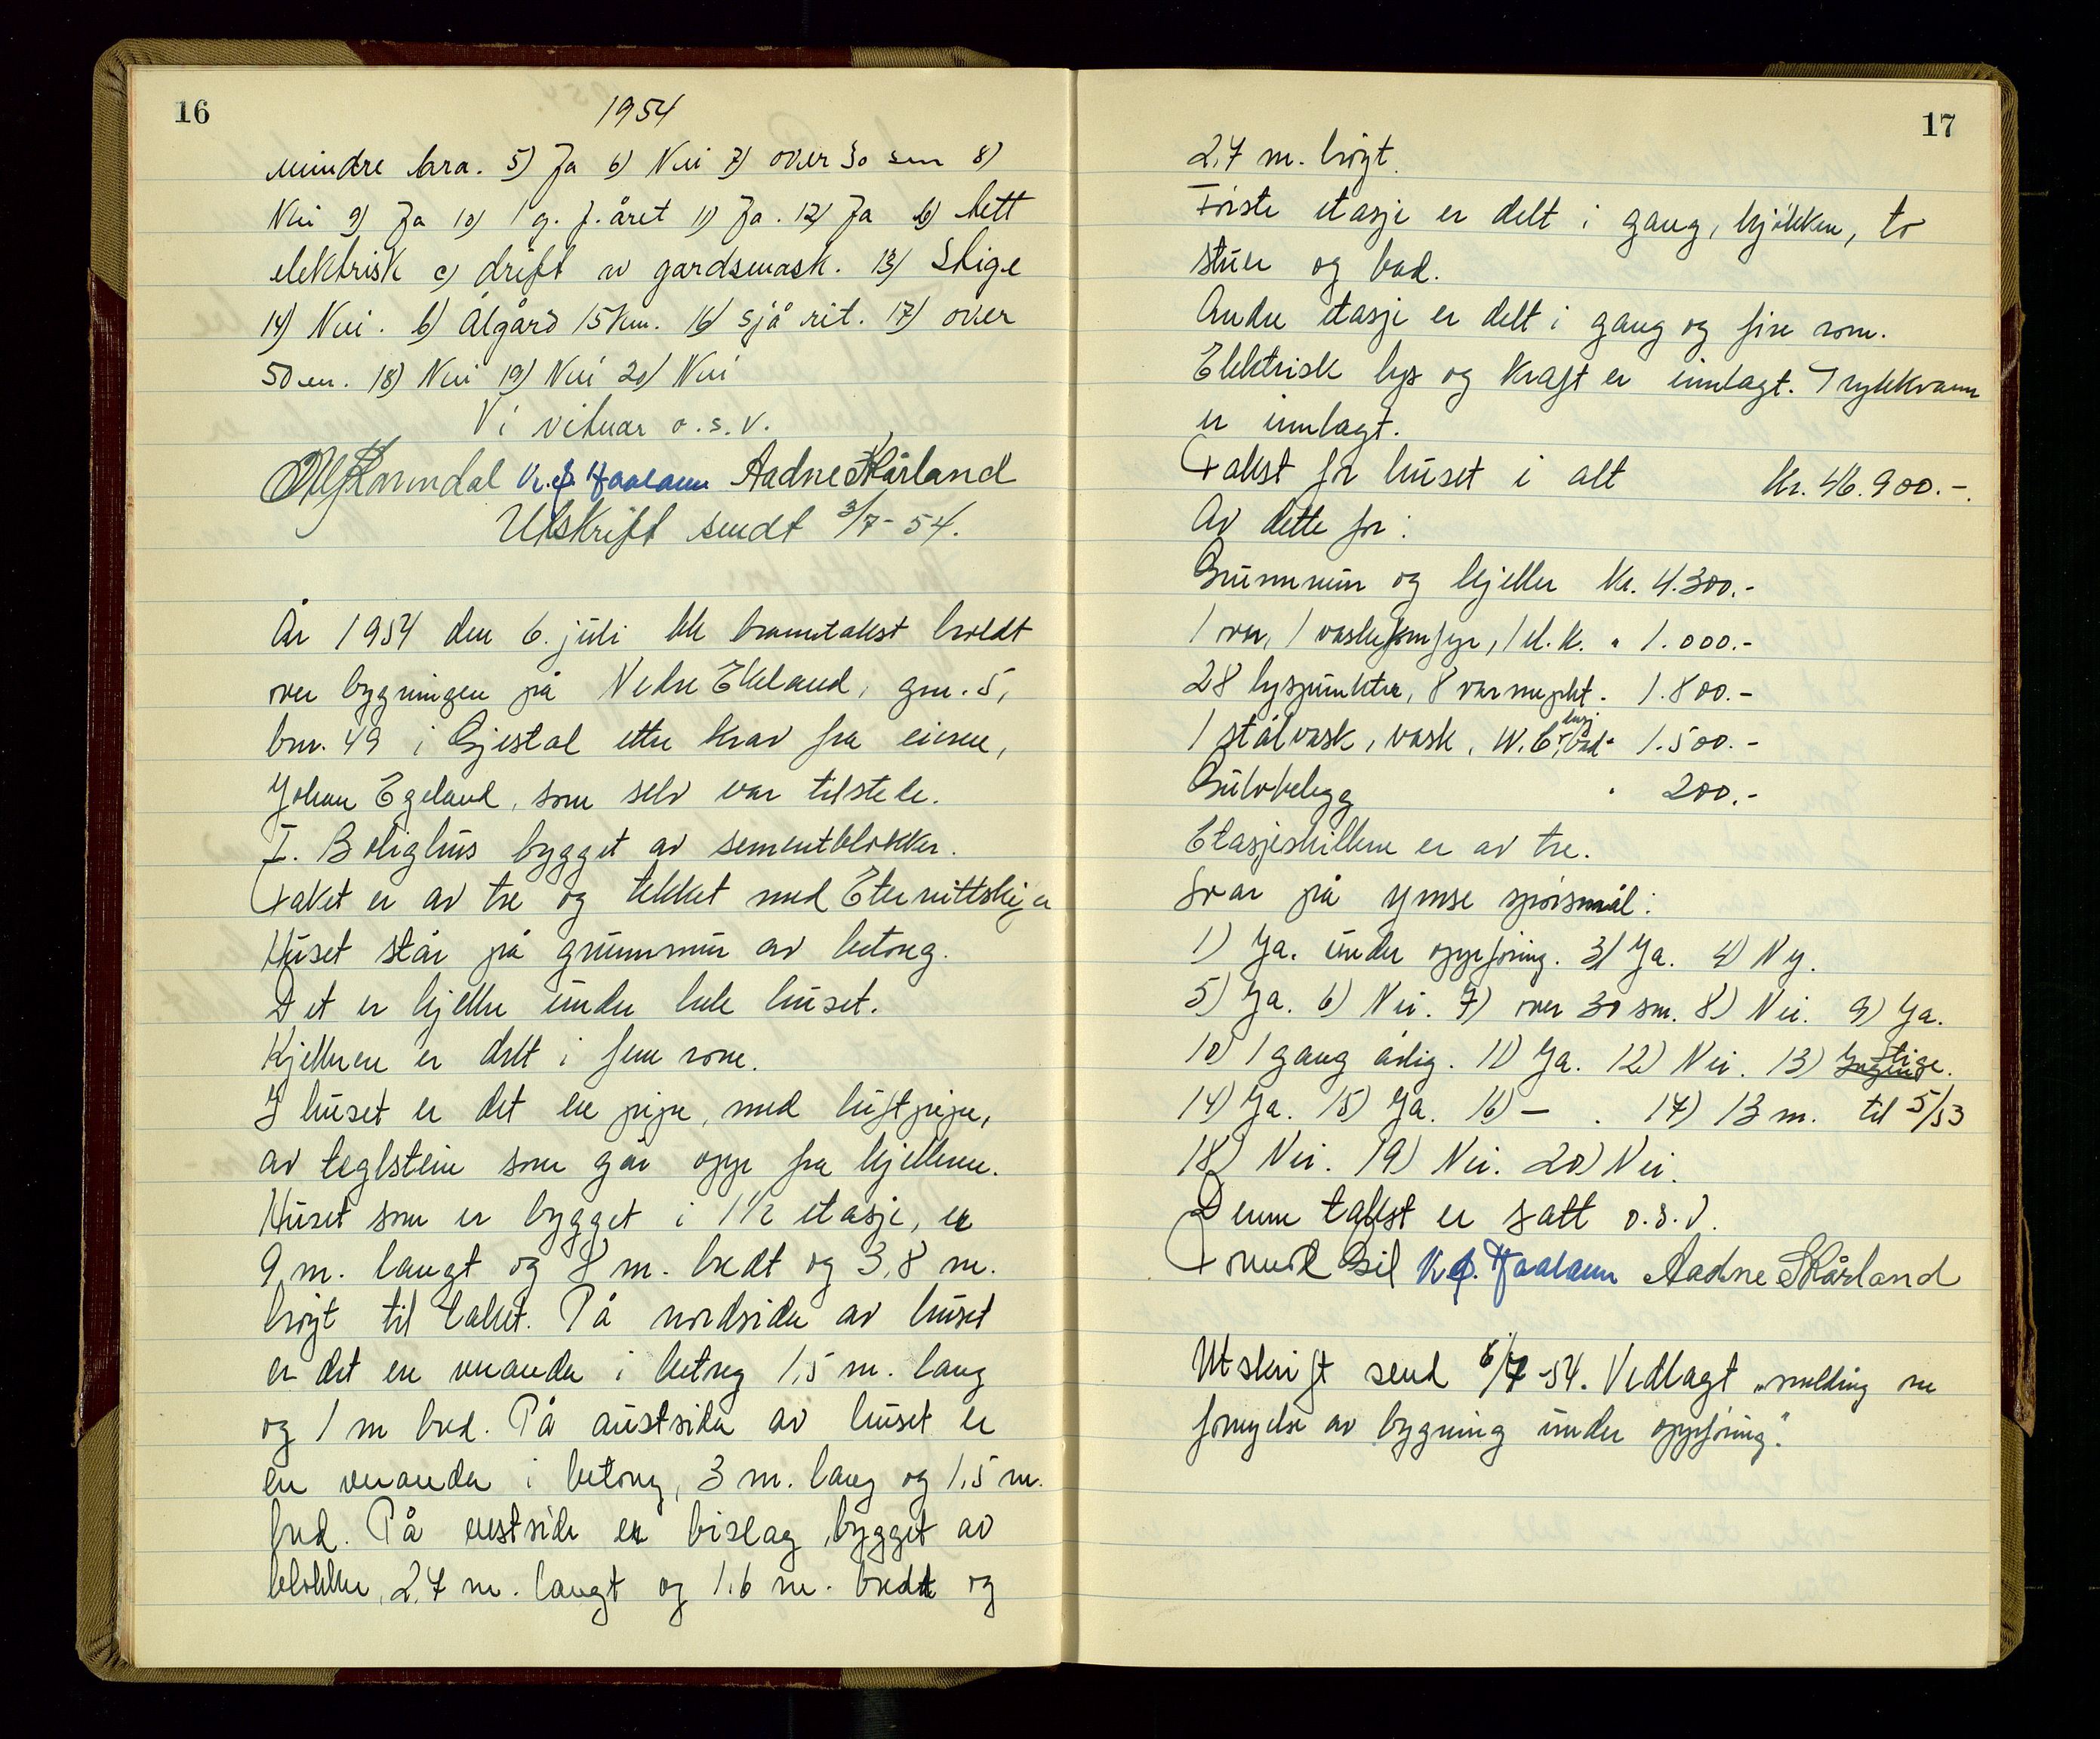 16
1954
mindre bra. 5) Ja 6) Nei 7) over 30 sm 8)
Nei 9) Ja 10) 1 g. f. året 11) Ja. 12) Ja b) lett
elektrisk c) drift av gardsmask. 13) Stige
14) Nei. b) Ålgård 15 km. 16) Sjå rit. 17) over
50 m. 18) Nei 19) Nei 20) Nei
Vi vitnar o.s.v.
K. J. Haaland Aadne Skårland
Utskrift sendt 3/7-54.
År 1954 den 6. juli ble branntakst holdt
over bygningen på Nedre Ekeland, gnr. 5,
bnr. 49 i Gjestal etter krav fra eieren,
Johan Egeland, som selv var tilstede.
I. Bolighus bygget av sementblokker.
Taket er av tre og tekket med Eternittskifer
Huset står på grunnmur av betong.
Det er kjeller under hele huset.
Kjelleren er delt i fem rom.
I huset er det en pipe, med luftpipe,
av teglstein som går opp fra kjelleren.
Huset som er bygget i 1½ etasje, er
9 m. langt og 8 m. bredt og 3,8 m.
høgt til taket. På nordsiden av huset
er det en veranda i betong 1,5 m. lang
og 1 m bred. På austsiden av huset er
en veranda i betong, 3 m. lang og 1,5 m.
bred. På vestside er bislag bygget av
blokker, 2,7 m. langt og 1,6 m. bredt og
17
2,7 m. høgt.
Første etasje er delt i gang, kjøkken, to
stuer og bad.
Andre etasje er delt i gang og fire rom.
Elektrisk lys og kraft er innlagt. Trykkvann
er innlagt.
Takst for huset i alt kr. 46.900.-
Av dette for:
Grunnmur og kjeller kr. 4.300.-
1 ovn, 1 vaskekomfyr, 1 el. k. " 1.000.-
28 lyspunkter, 8 varmepkt. 1.800.-
1 stålvask, vask, W.C., bad " 1.500.-
Gulvbelegg " 200.-
Etasjeskillene er av tre.
Svar på ymse spørsmål:
1) Ja. under oppføring. 3) Ja. 4) Ny.
5) Ja. 6) Nei. 7) over 30 sm. 8) Nei. 9) Ja.
10) 1 gang årlig. 11) Ja. 12) Nei. 13) Stige.
14) Ja. 15) Ja. 16) - . 17) 13 m. til 5/53
18) Nei. 19) Nei. 20) Nei.
Denne takst er satt o.s.v.
Tomas Gil K. J. Haaland Aadne Skårland
Utskrift send 6/7-54. Vedlagt „melding om
fornyelse av bygning under oppføring."